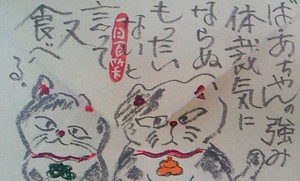 ばあちゃんの強み
体裁気に
ならぬ
もったい
ないと
言って
又
食べ
る。
一日百笑